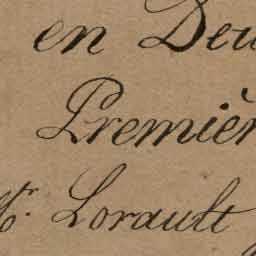 en Deu
Premièr
Mr. Lorault